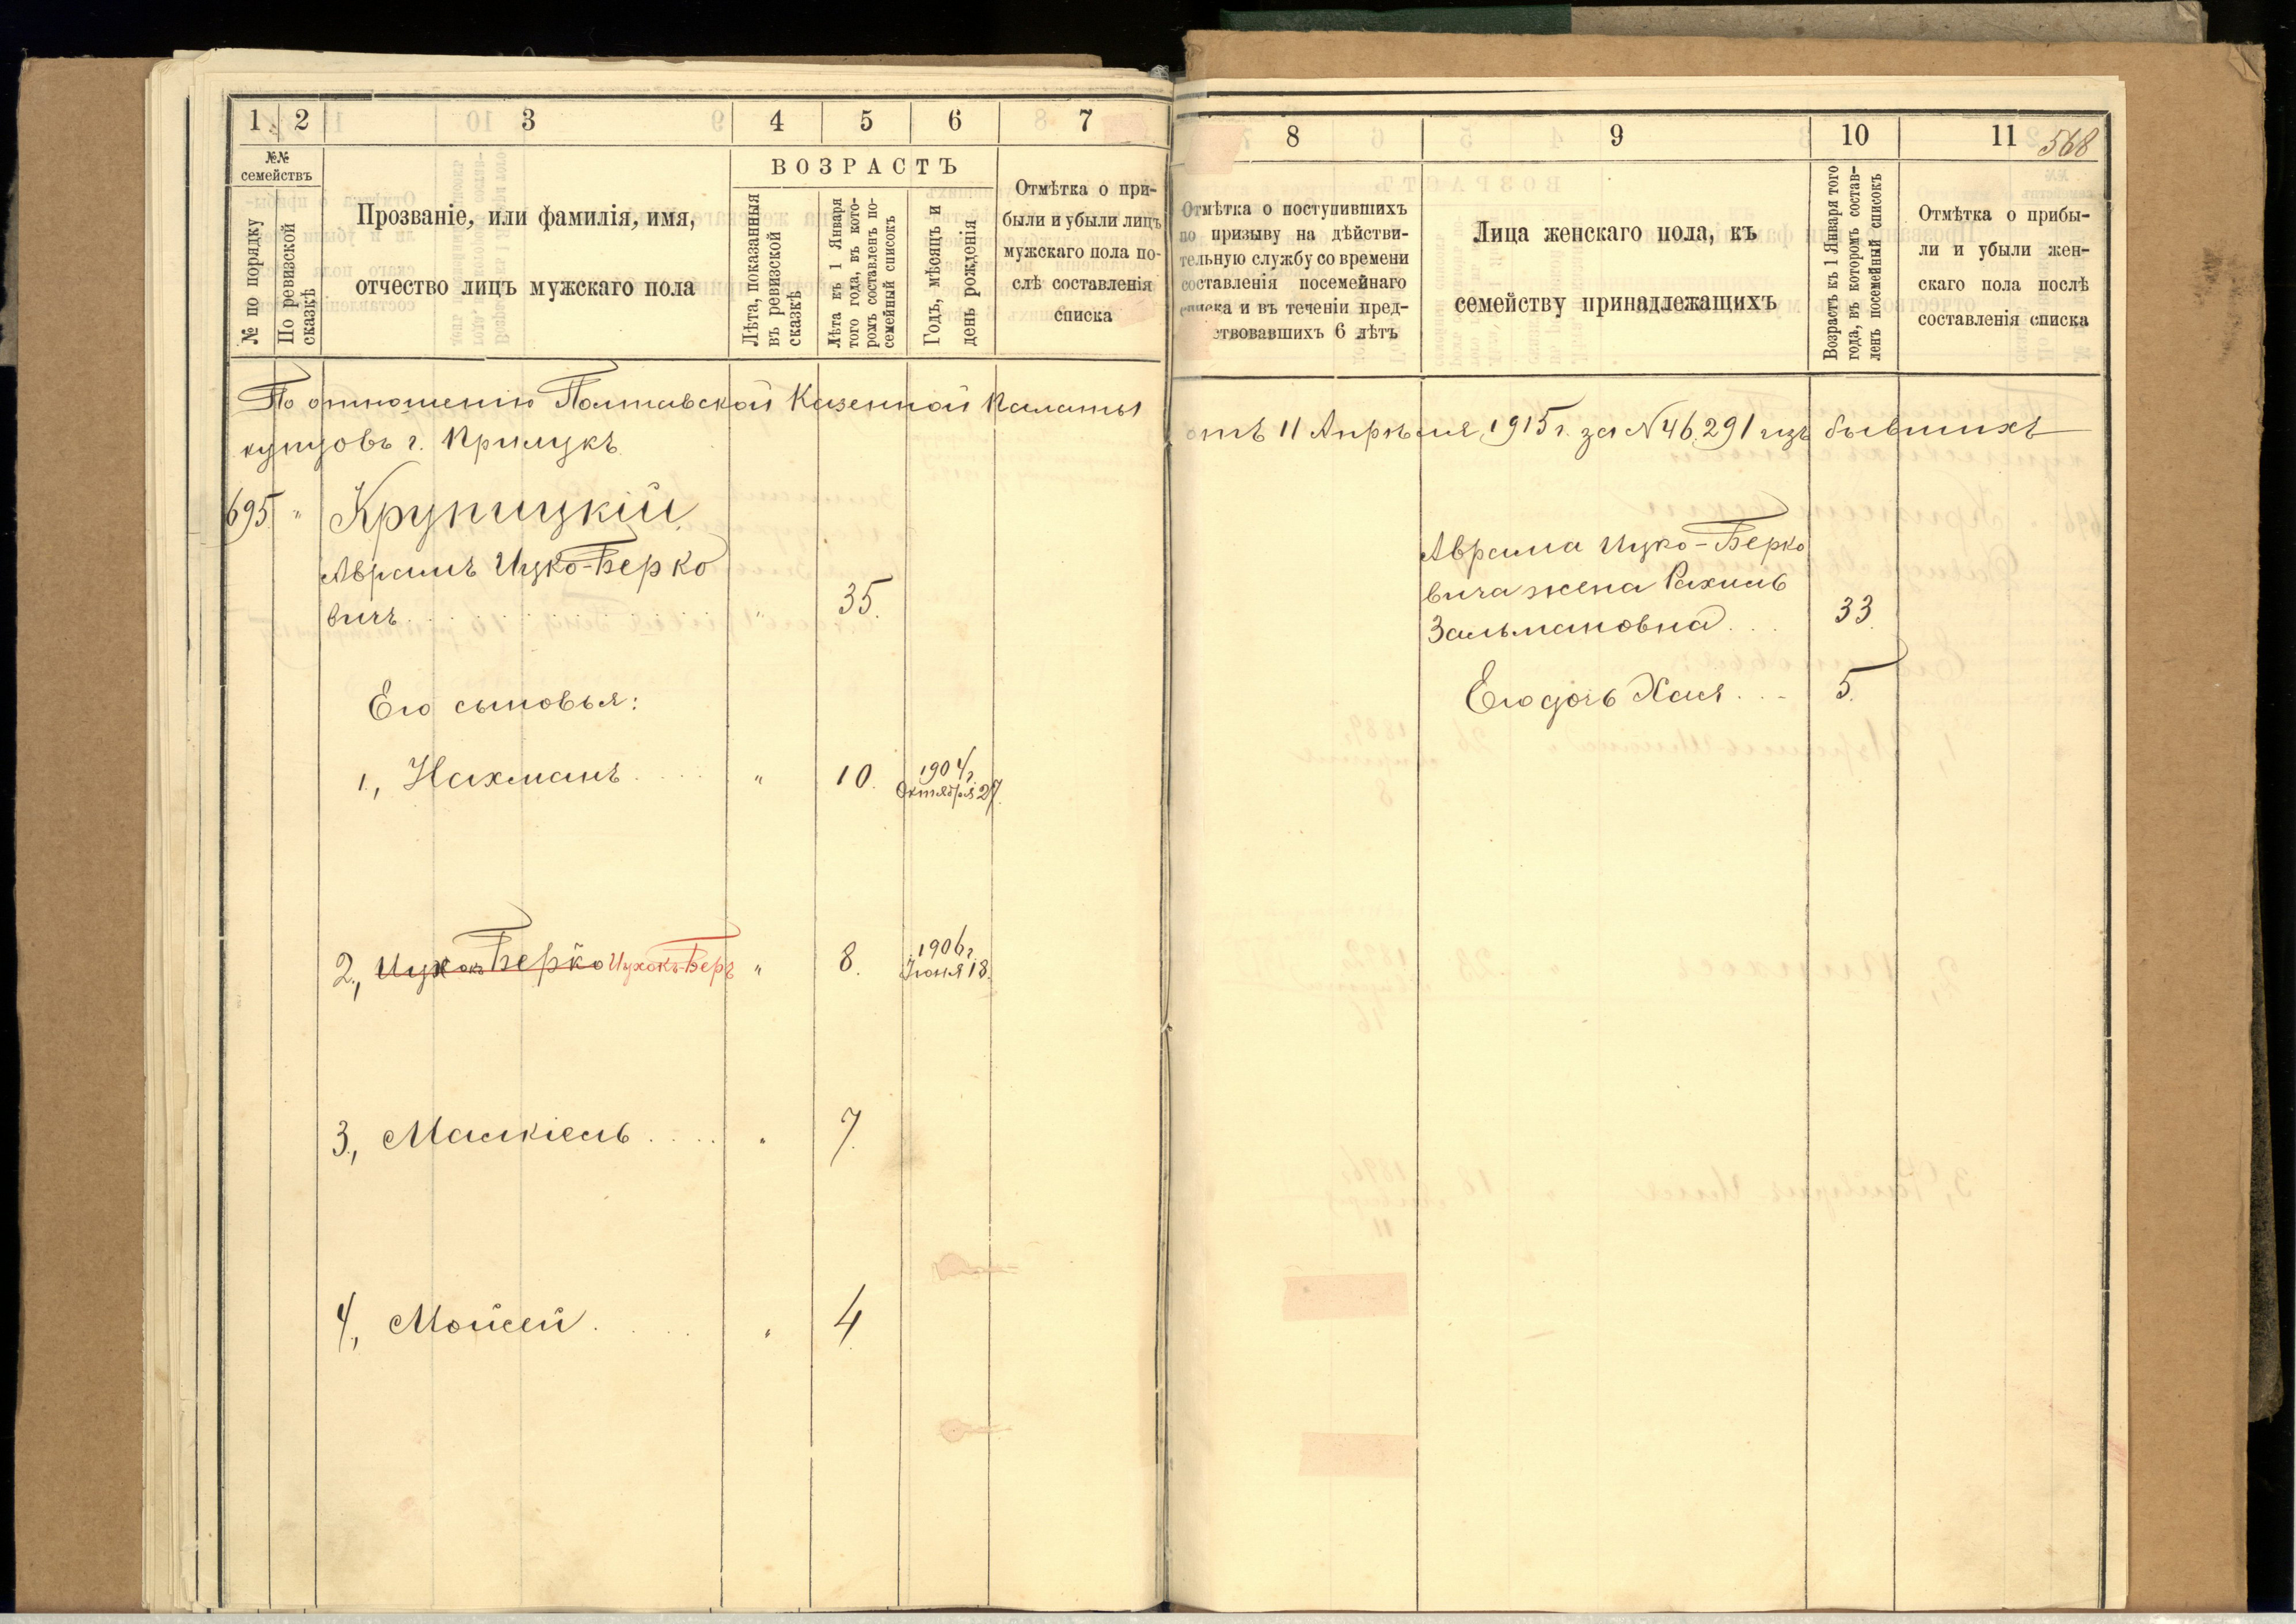 1 2 3 4 5 6 7
№№ семействъ
№ по порядку
По ревизской сказкѣ
Прозваніе, или фамилія, имя,
отчество лицъ мужскаго пола
ВОЗРАСТЪ
Лѣта, показанныя
въ ревизской
сказкѣ
Лѣта къ 1 Января
того года, въ кото-
ромъ составленъ по-
семейный списокъ
Годъ, мѣсяцъ и
день рожденія
Отмѣтка о при-
были и убыли лицъ
мужскаго пола по-
слѣ составленія
списка
По отношенію Полтавской Казенной Палаты
купцовъ г. Прилукъ
695 " Крупицкій
Аврамъ Ицко-Берко
вичъ . . . " 35.
Его сыновья:
1., Нахманъ . . . . " 10. 1904 г.
Октября 27.
2., Ицкокъ Берко Ицхокъ-Беръ " 8. 1906 г.
Іюня 18.
3., Малкіель . . . . " 7.
4., Мойсей . . . . " 4
8 9 10 11
568
Отмѣтка о поступившихъ
по призыву на дѣйстви-
тельную службу со времени
составленія посемейнаго
списка и въ теченіи пред-
ствовавшихъ 6 лѣтъ
Лица женскаго пола, къ
семейству принадлежащихъ
Возрастъ къ 1 Января того
года, въ которомъ состав-
ленъ посемейный списокъ
Отмѣтка о прибы-
ли и убыли жен-
скаго пола послѣ
составленія списка
отъ 11 Апрѣля 1915 г. за № 46,291 изъ бывшихъ
Аврама Ицко-Берко
вича жена Рахиль
Зальмановна . . . 33
Его дочь Хая . . - 5.